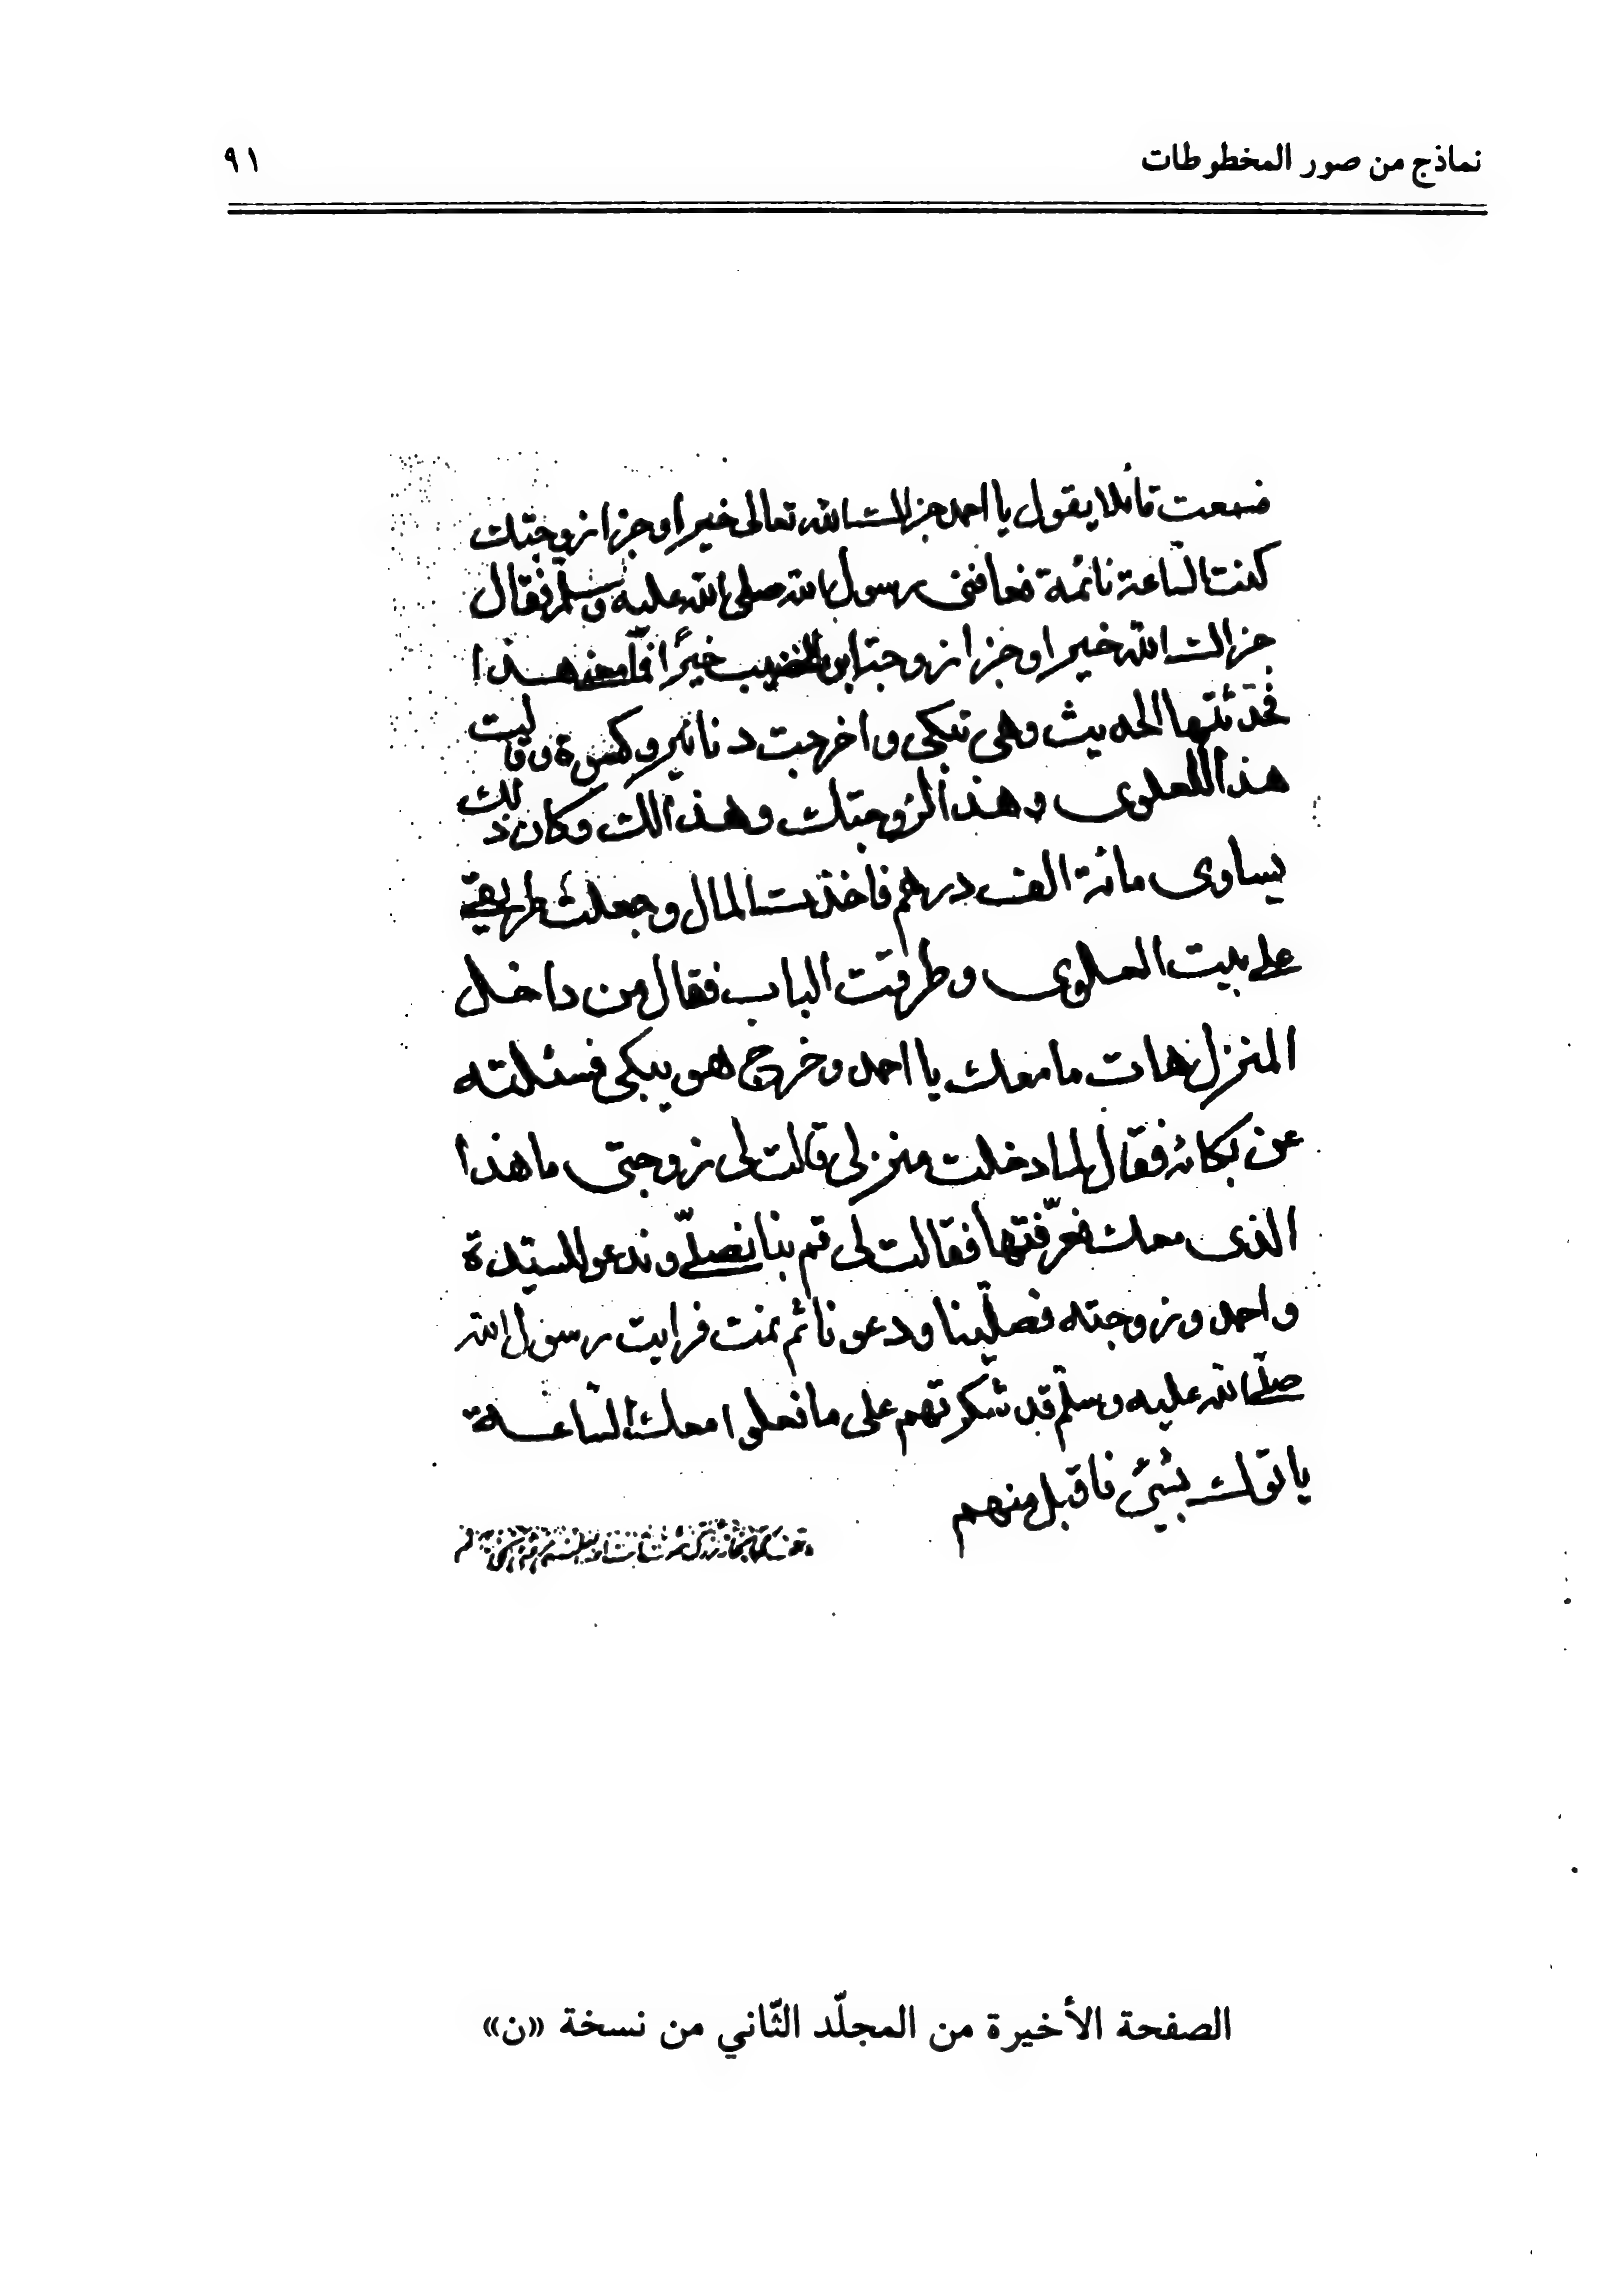 نماذج من صور المخطوطات ٩١
فسمعت قائلا يقول يا احمد جزاك الله تعالى خيرا وجزا زوجتك
كنت الساعة نائمة فوافنى رسول الله صلى الله عليه وسلّم فقال
جزاك الله خيرا وجزا زوجة ابن الخضيب خيرًا فما معنى هذا
فحدثتها الحديث وهى تبكى واخرجت دنانير وكسوة وقالت
هذا للعلوى وهذا لزوجتك وهذا لك وكان ذلك
يساوى مائة الف درهم فاخذت المال وجعلت طريقى
على بيت العلوى وطرقت الباب فقال من داخل
المنزل هات ما معك يا احمد وخرج هو يبكى فسئلته
عن بكائه فقال لما دخلت منزلى قالت لى زوجتى ما هذا
الذى معك فعرّفتها فقالت لى قم بنا نصلّى وندعو للسيّدة
واحمد وزوجته فصلّينا ودعونا ثم نمت فرايت رسول الله
صلّى الله عليه وسلّم قد شكرتهم على ما فعلوا معك الساعة
ياتوك بشئ فاقبل منهم
الصفحة الأخيرة من المجلّد الثّاني من نسخة «ن»